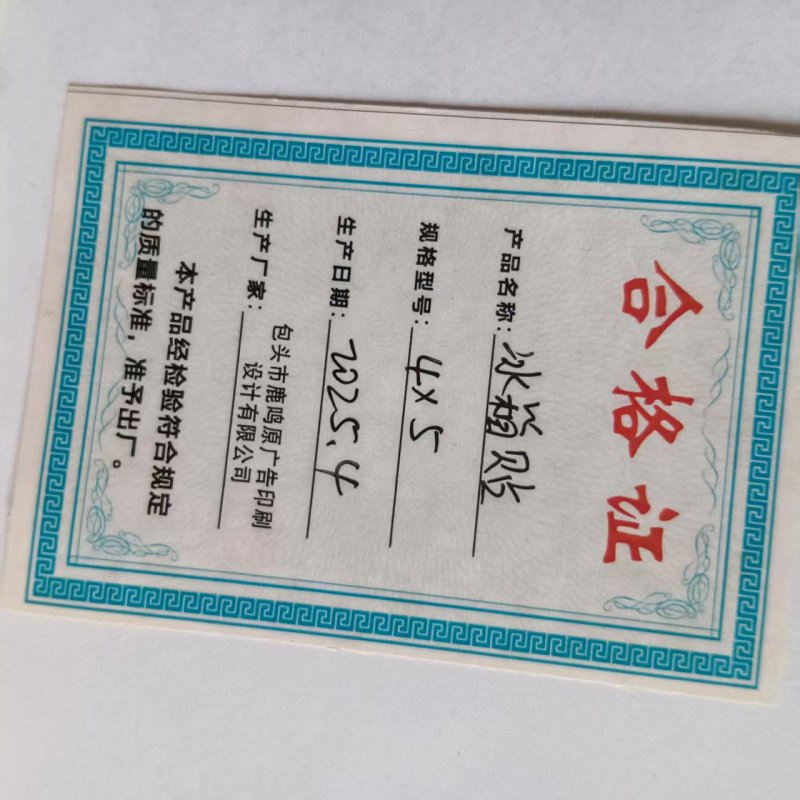 合格证
产品名称：冰箱贴
规格型号：4×5
生产日期：2025.4
生产厂家：包头市鹿鸣原广告印刷
设计有限公司
本产品经检验符合规定
的质量标准，准予出厂。